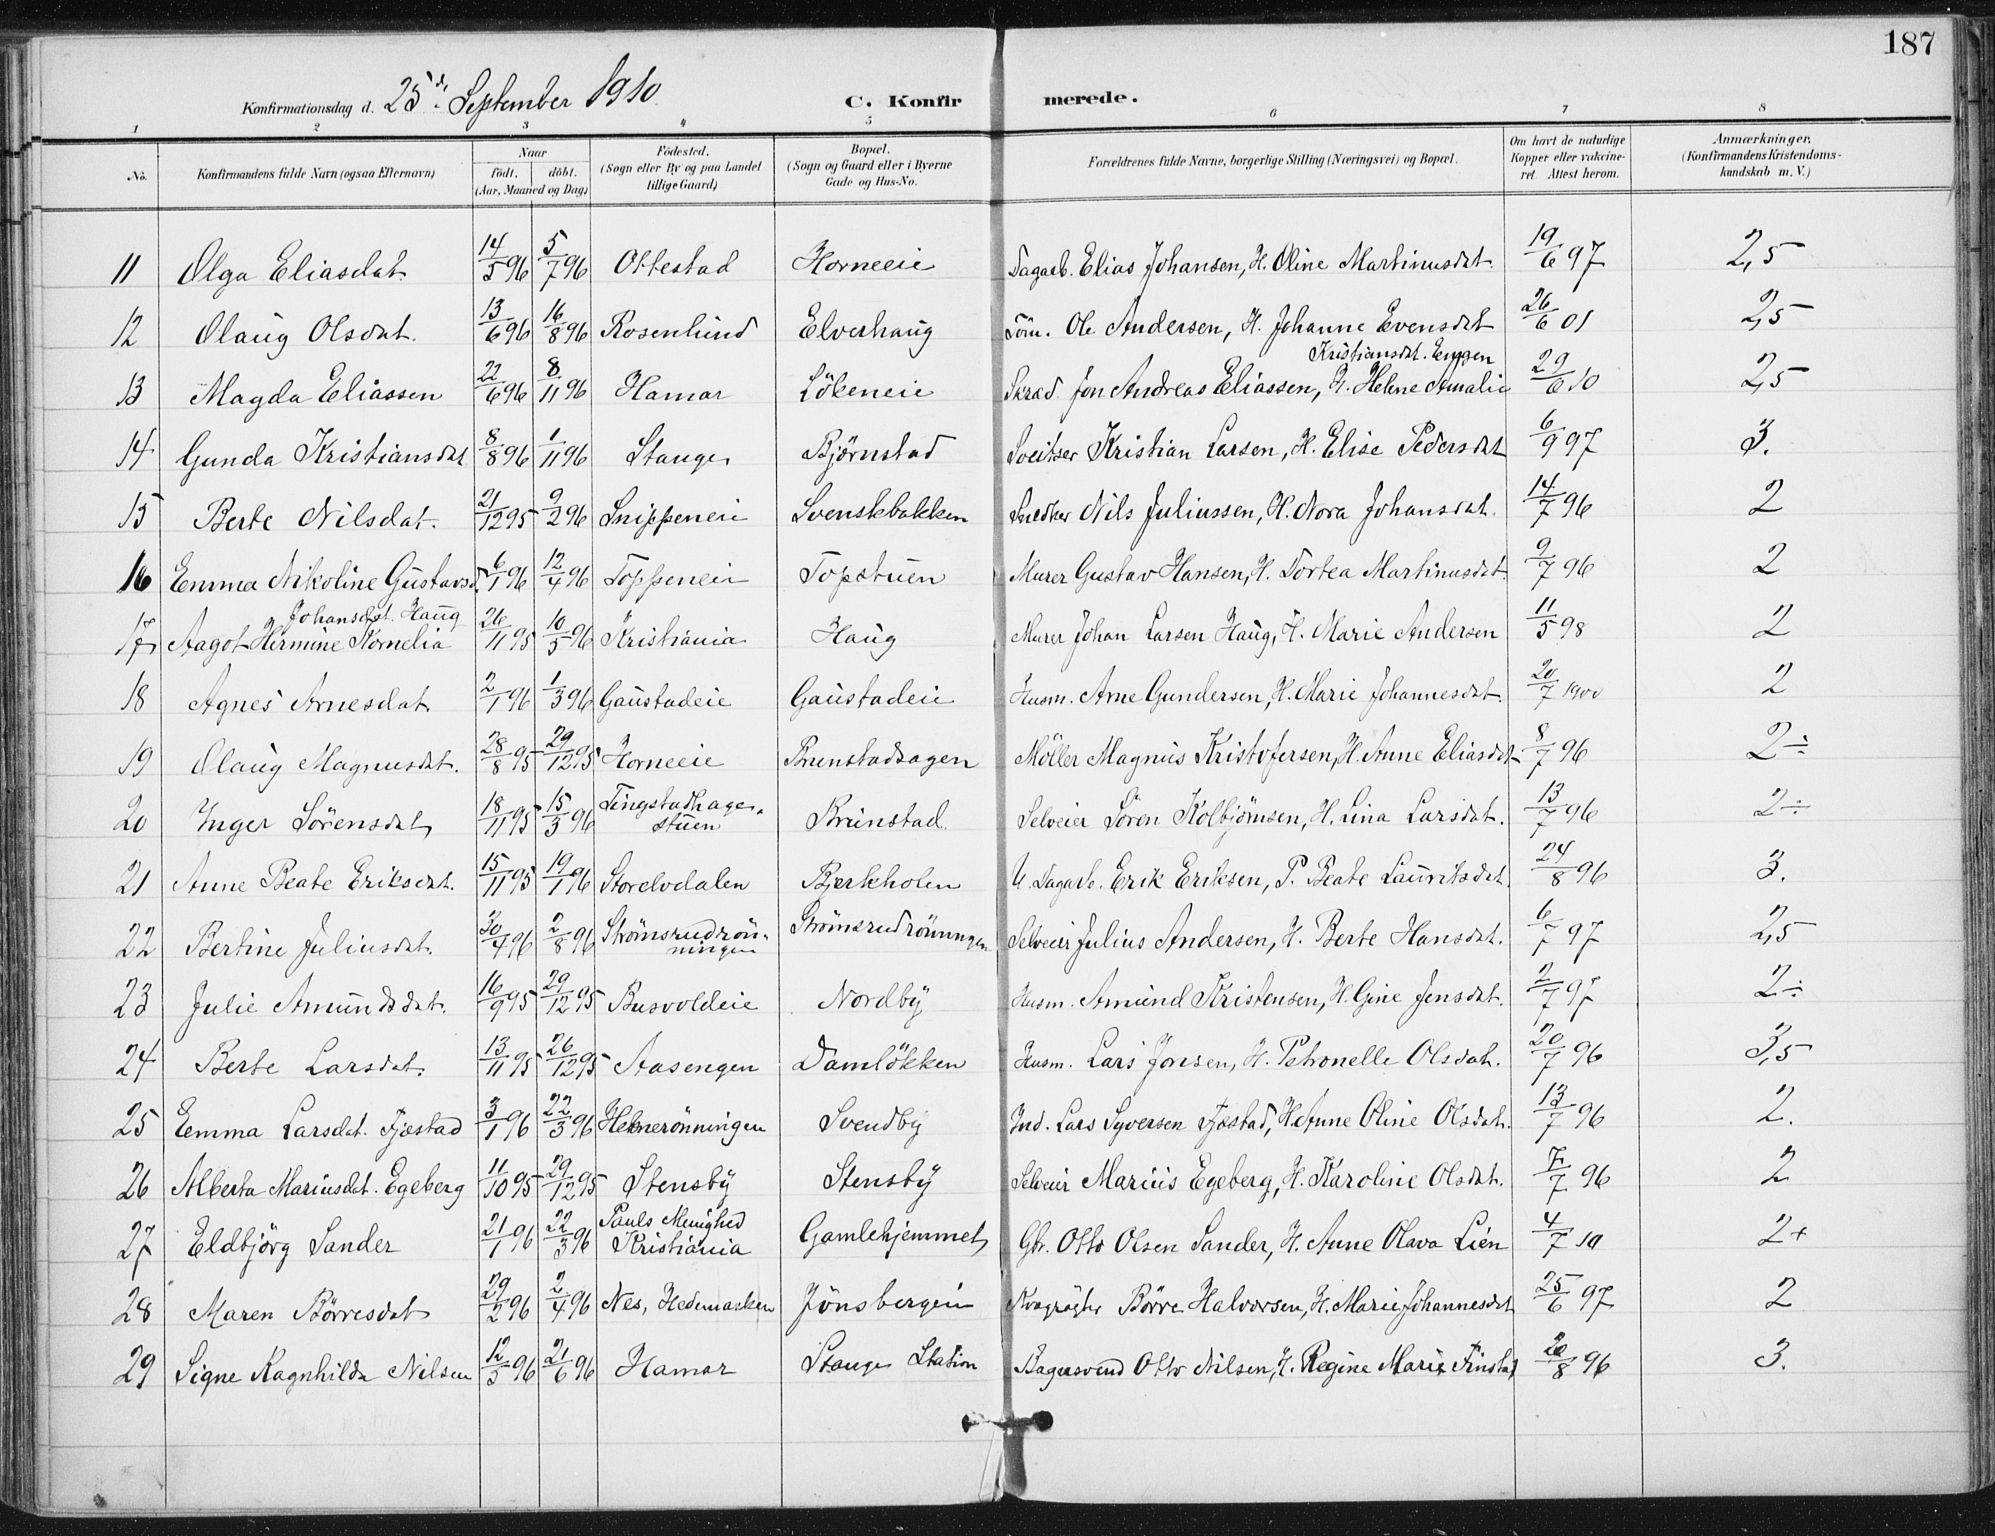 187
Konfirmationsdag d. 25d. September 1910. C. Konfirmerede.
1 2 3 4 5 6 7 8
No. Konfirmandens fulde Navn (ogsaa Efternavn) Naar født. døbt. (Aar, Maaned og Dag) Fødested. (Sogn eller By og paa Landet tillige Gaard) Bopæl. (Sogn og Gaard eller i Byerne Gade og Hus-No. Forældrenes fulde Navne, borgerlige Stilling (Næringsvei) og Bopæl. Om havt de naturlige Kopper eller vakcineret. Attest herom. Anmærkninger, (Konfirmandens Kristendomskundskab m. V.)
11 Olga Eliasdat. 14/5 96 5/7 96 Ottestad Horneeie Dagarb. Elias Johansen, H. Oline Martinusdat. 19/6 97 2,5
12 Olaug Olsdat. 13/6 96 16/8 96 Rosenlund Elverhaug Töm. Ole Andersen, H. Johanne Evensdat 26/6 01 2,5
Kristiansdat. Engen
13 Magda Eliassen 22/6 96 8/11 96 Hamar Lökeneie Skræd. Jon Andreas Eliassen, H. Helene Amalie 29/6 10 2,5
14 Gunda Kristiansdat 8/8 96 1/11 96 Stange Björnstad Sveitser Kristian Larsen, H. Elise Pedersdat 6/9 97 3.
15 Berte Nilsdat. 21/12 95 9/2 96 Snippeneie Svenskbakken Snedker Nils Juliussen, H. Nora Johansdat. 14/7 96 2
16 Emma Nikoline Gustavsd. 6/1 96 12/4 96 Toppeneie Topstuen Murer Gustav Hansen, H. Dortea Martinusdat. 9/7 96 2
Johansdat. Haug
17 Aagot Hermine Kornelia 26/11 95 10/5 96 Kristiania Haug Murer Johan Larsen Haug, H. Marie Andersen 11/5 98 2
18 Agnes Arnesdat. 2/1 96 1/3 96 Gaustadeie Gaustadeie Husm. Arne Gundersen, H. Marie Johannesdat. 20/7 1900 2
19 Olaug Magnusdat. 28/8 95 29/12 95 Horneeie Brunstadsagen Möller Magnus Kristofersen, H. Anne Eliasdat 8/7 96 2÷
20 Inger Sörensdat. 18/11 95 15/3 96 Tingstadhagestuen Brunstad. Selveier Sören Kolbjörnsen, H. Lina Larsdat. 13/7 96 2÷
21 Anne Beate Eriksdat. 15/11 95 19/1 96 Storelvdalen Bjerkholen U. Dagarb. Erik Eriksen, P. Beate Lauritsdat. 24/8 96 3.
22 Bertine Juliusdat. 30/4 96 2/8 96 Strömsrudrönningen Strömsrudrönningen Selveier Julius Andersen, H. Berte Hansdat. 6/7 97 2,5
23 Julie Amundsdat. 16/9 95 29/12 95 Busvoldeie Nordby Husm. Amund Kristensen, H. Gine Jensdat. 2/7 97 2÷
24 Berte Larsdat. 13/11 95 26/12 95 Aasengen Damlökken Husm. Lars Jonsen, H. Petronelle Olsdat. 20/7 96 3,5
25 Emma Larsdat. Fjæstad 3/1 96 22/3 96 Heknerönningen Svendby Ind. Lars Syversen Fjæstad, H. Anne Oline Olsdat. 13/7 96 2.
26 Alberta Mariusdat. Egeberg 11/10 95 29/12 95 Stensby Stensby Selveier Marius Egeberg, H. Karoline Olsdat. 7/7 96 2
27 Eldbjörg Sander 21/1 96 22/3 96 Pauls Menighed Kristiania Gamlehjemmet Gbr. Otto Olsen Sander, H. Anne Olava Lien 4/7 10 2+
28 Maren Börresdat 29/2 96 2/4 96 Nes, Hedemarken Jönsbergen Kvægrögter Börre Halvorsen, H. Marie Johannesdat 25/6 97 2
29 Signe Ragnhilda Nilsen 12/5 96 21/6 96 Hamar Stange Station Bagersvend Otto Nilsen, H. Regine Marie Finstad 20/8 96 3.